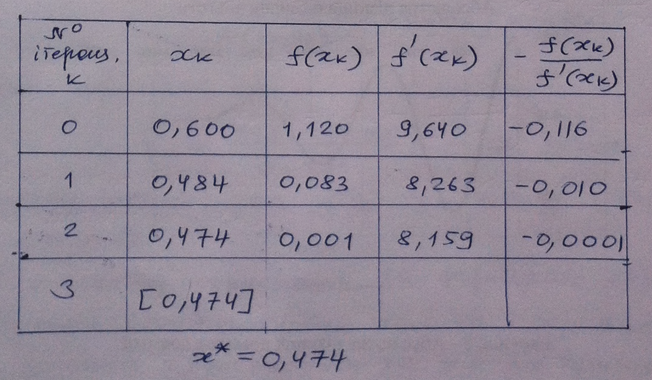 № ітерац. к xк f(xк) f'(xк) - f(xк)/f'(xк)
0 0,600 1,120 9,640 -0,116
1 0,484 0,083 8,263 -0,010
2 0,474 0,001 8,159 -0,0001
3 [0,474]
x* = 0,474